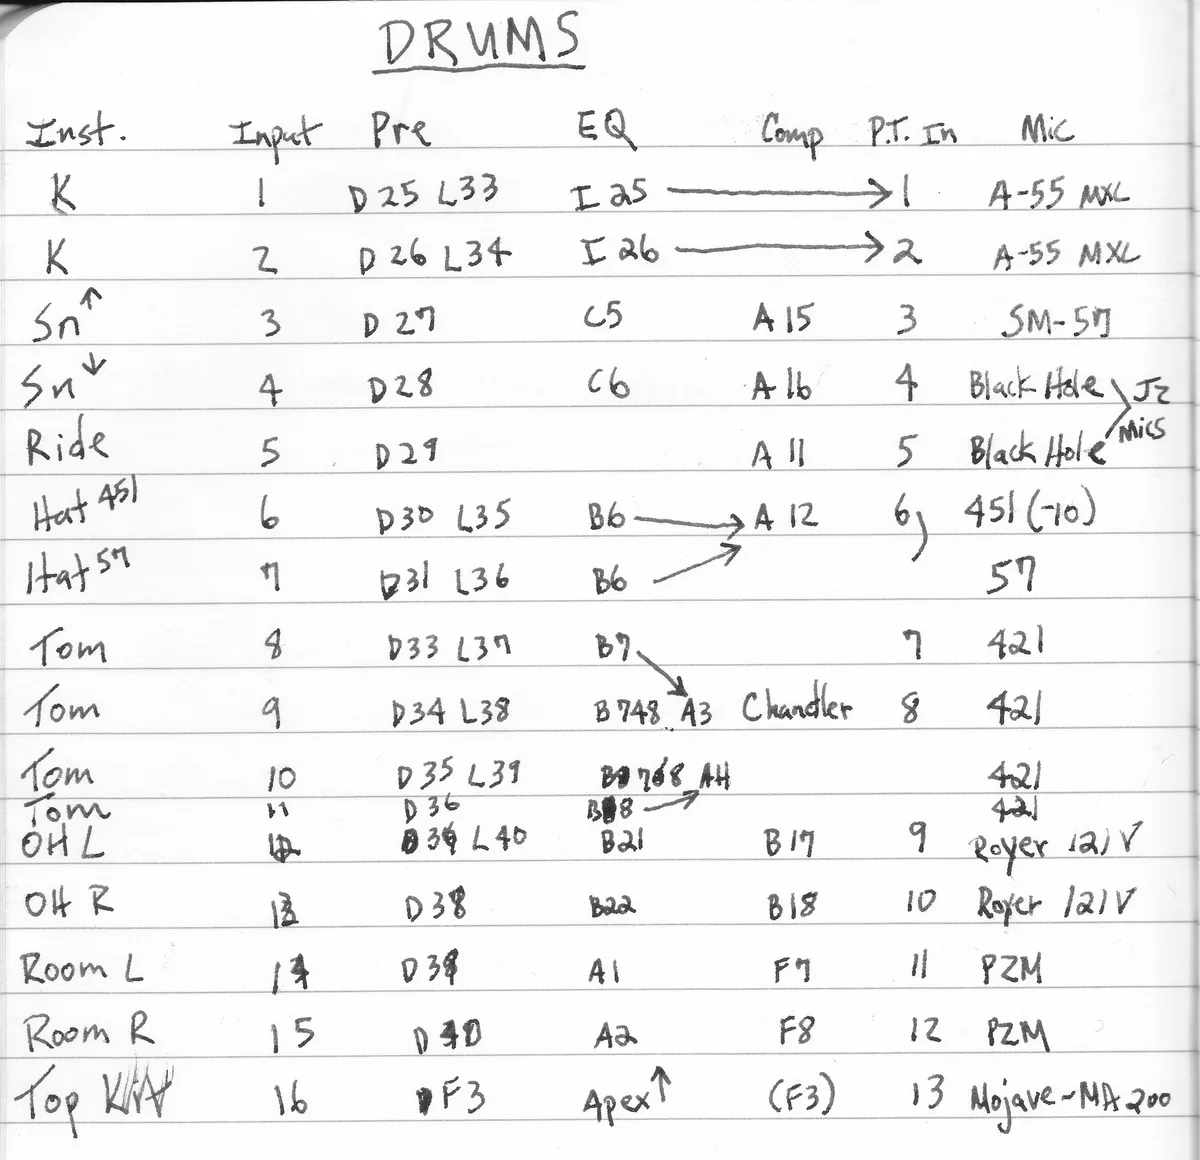 DRUMS
Inst. Input Pre EQ Comp P.T. In Mic
K 1 D25 L33 I25 → 1 A-55 MXL
K 2 D26 L34 I26 → 2 A-55 MXL
Sn↑ 3 D27 C5 A15 3 SM-57
Sn↓ 4 D28 C6 A16 4 Black Hole JZ
Ride 5 D29 A11 5 Black Hole Mics
Hat 451 6 D30 L35 B6 → A12 6 451 (-10)
Hat 57 7 D31 L36 B6 57
Tom 8 D33 L37 B7 7 421
Tom 9 D34 L38 B748 A3 Chandler 8 421
Tom 10 D35 L39 421
Tom 11 D36 → 421
OH L 12 L40 B21 B17 9 Royer 121V
OH R 13 D38 B22 B18 10 Royer 121V
Room L 14 D39 A1 F7 11 PZM
Room R 15 D40 A2 F8 12 PZM
Top 16 F3 Apex↑ (F3) 13 Mojave-MA200